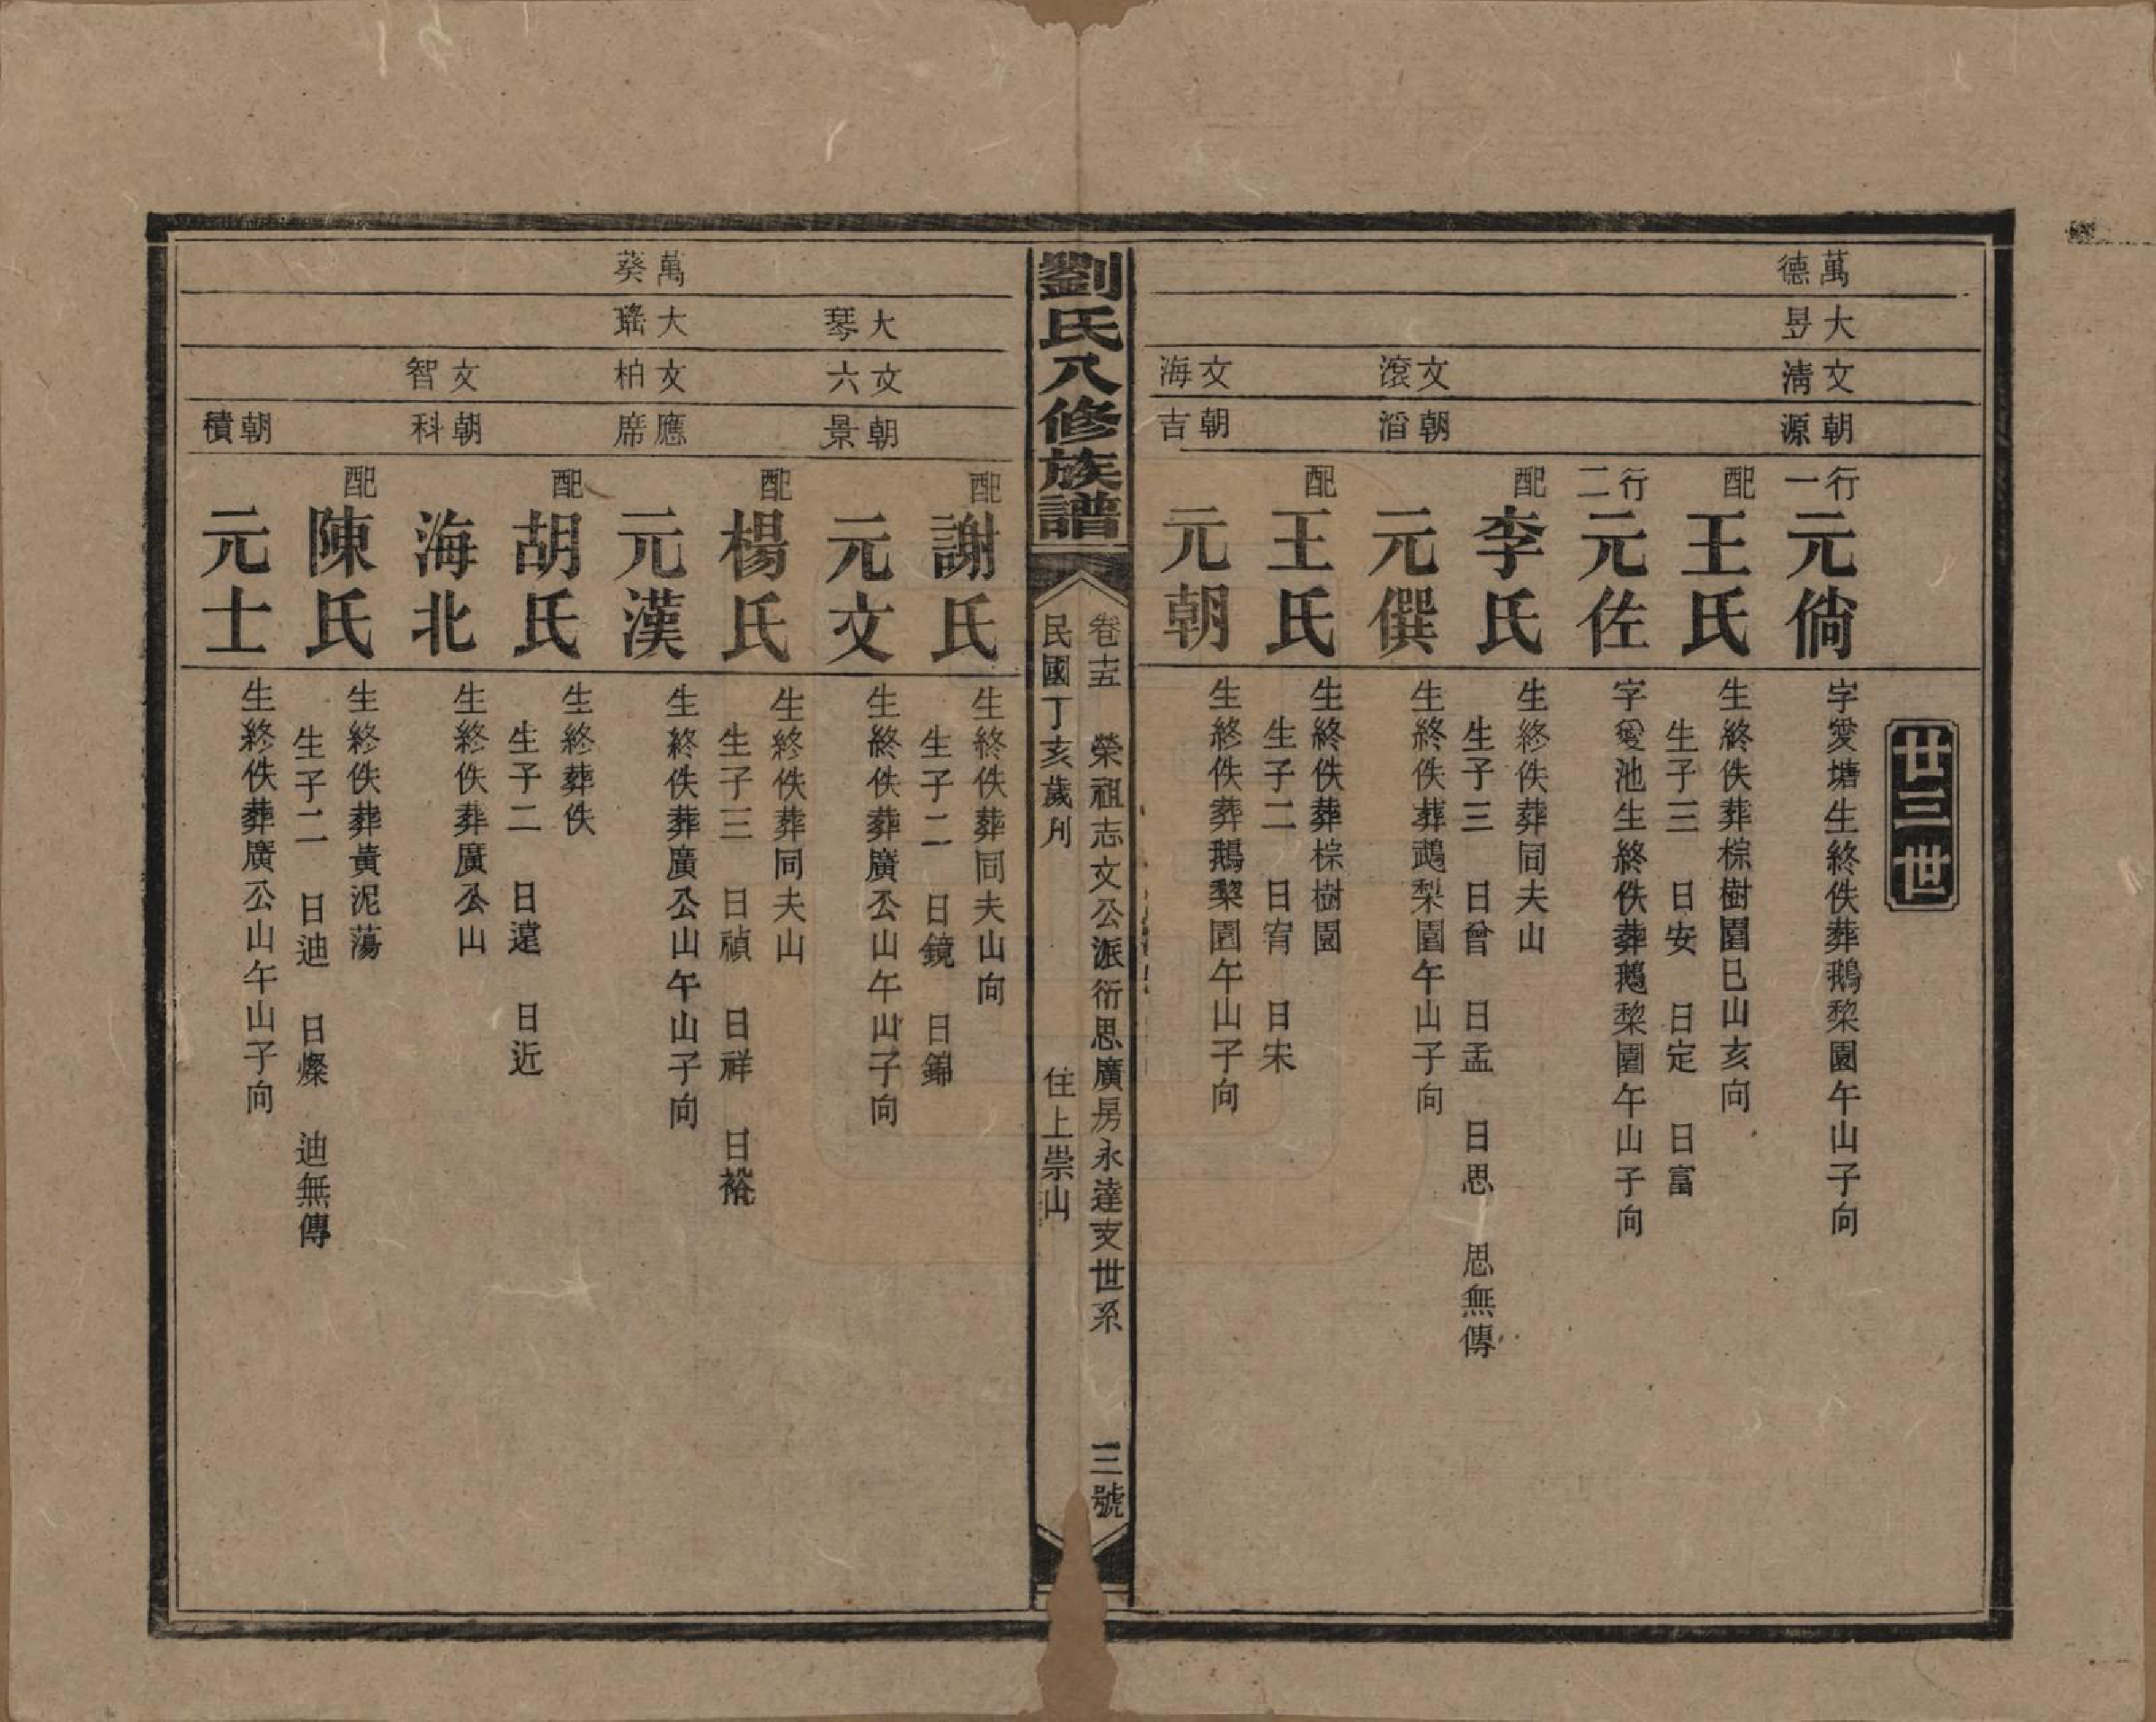 廿三世
萬德
大昱
文清
朝源
行一
元倘
字愛塘生終佚葬鵝棃園午山子向
配
王氏
生終佚葬棕樹園巳山亥向
生子三 日安 日定 日富
行二
元佐
字愛池生終佚葬鵝棃園午山子向
配
李氏
生終佚葬同夫山
生子三 日曾 日孟 日思 思無傳
文滾
朝滔
元僎
生終佚葬鵝梨園午山子向
配
王氏
生終佚葬棕樹園
生子二 日宥 日宋
文海
朝吉
元朝
生終佚葬鵝棃園午山子向
劉氏八修族譜
卷十五 榮祖志文公派衍思廣房永達支世系 三號
民國丁亥歲刋 住上崇山
配
謝氏
生終佚葬同夫山向
生子二 日鏡 日錦
大琴
文六
朝景
元文
生終佚葬廣公山午山子向
配
楊氏
生終佚葬同夫山
生子三 日禎 日祥 日裕
萬葵
大瑤
文柏
應席
元漢
生終佚葬廣公山午山子向
配
胡氏
生終葬佚
生子二 日遠 日近
文智
朝科
海北
生終佚葬廣公山
配
陳氏
生終佚葬黃泥蕩
生子二 日迪 日燦 迪無傳
朝積
元士
生終佚葬廣公山午山子向